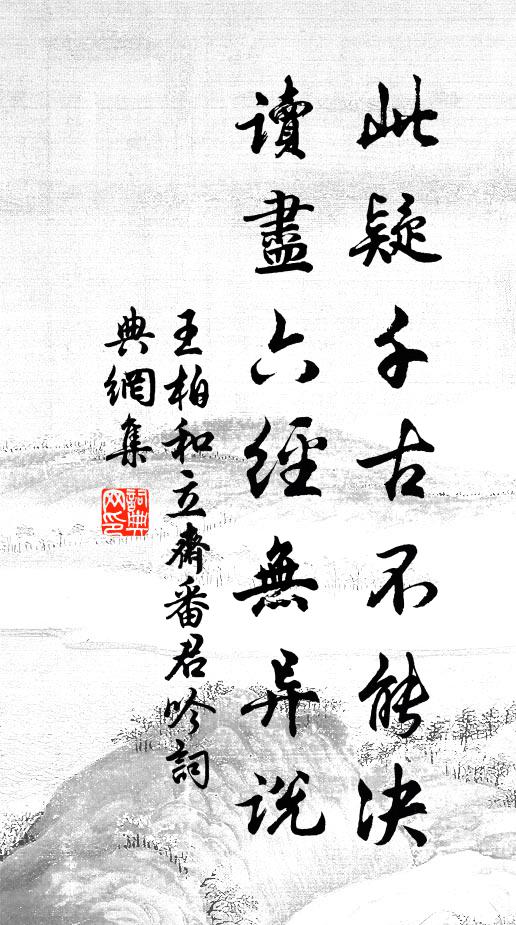 此疑千古不能決
讀盡六經無异說
王柏和立齋番君吟詞
典網集
詞典
網印